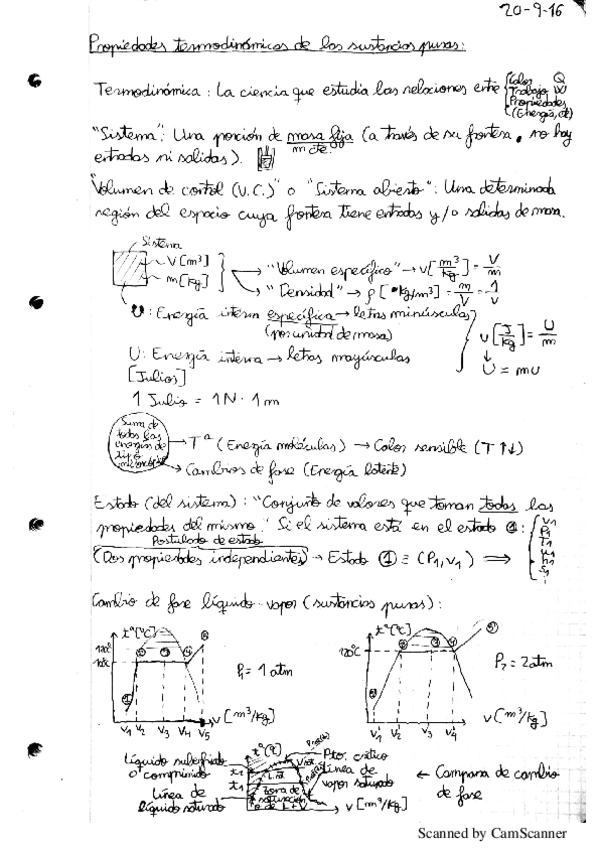 20-9-16
Propiedades termodinámicas de las sustancias puras:
Termodinámica: La ciencia que estudia las relaciones entre
Calor Q
Trabajo W
Propiedades
(Energía, etc)
"Sistema": Una porción de masa fija (a través de su frontera, no hay
m cte.
entradas ni salidas).
"Volumen de control (V.C.)" o "Sistema abierto": Una determinada
región del espacio cuya frontera tiene entradas y/o salidas de masa.
Sistema
V [m³]
m [kg]
→ "Volumen específico" → v [m³/kg] = V/m
→ "Densidad" → ρ [kg/m³] = m/V = 1/v
u: Energía interna específica → letras minúsculas
(por unidad de masa)
u [J/kg] = U/m
↓
U = mu
U: Energía interna → letras mayúsculas
[Julios]
1 Julio = 1N · 1m
Suma de
todas las
energías de
tipo
→ Tª (Energía moléculas) → Calor sensible (T↑↓)
→ Cambios de fase (Energía latente)
Estado (del sistema): "Conjunto de valores que toman todas las
propiedades del mismo." Si el sistema está en el estado 1:
v1
P1
T1
u1
h1
s1
Postulado de estado
(Dos propiedades independientes) → Estado ① ≡ (P1, v1) ⟹
Cambio de fase líquido-vapor (sustancias puras):
tª[ºC]
P1 = 1 atm
v [m³/kg]
v1 v2 v3 v4 v5
tª[ºC]
120ºC
P2 = 2 atm
v [m³/kg]
v1 v2 v3 v4
tª[ºC]
Líquido subenfriado
o comprimido
Línea de
líquido saturado
t1
Zona de
saturación
L + V
Pto. crítico
Línea de
vapor saturado
v [m³/kg]
← Campana de cambio
de fase
Scanned by CamScanner